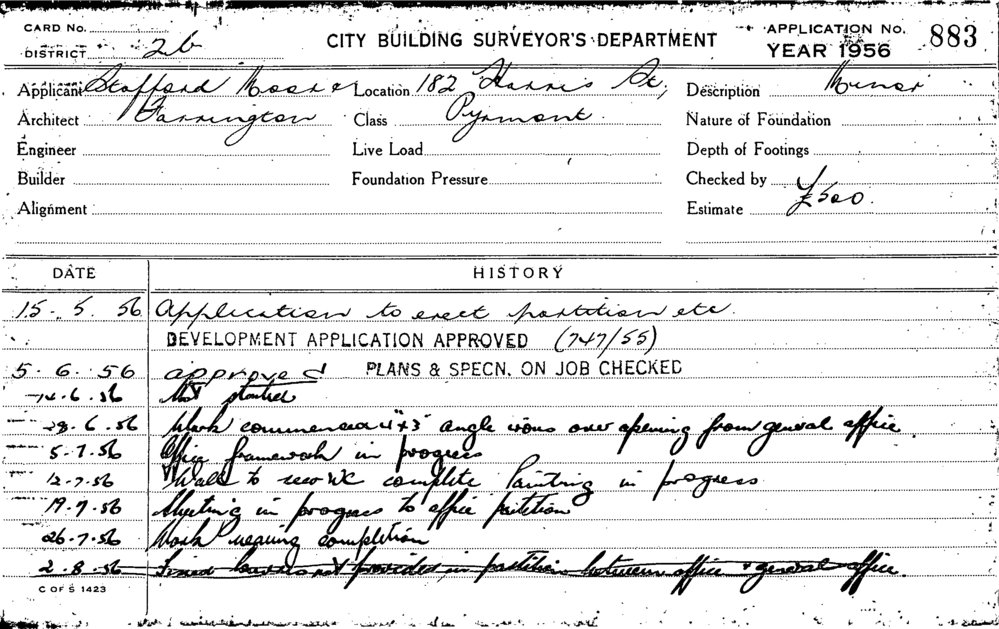 CARD No.
DISTRICT 2b
CITY BUILDING SURVEYOR'S DEPARTMENT
APPLICATION No. 883
YEAR 1956
Applicant Stafford Moore & Location 182 Harris St, Description Minor
Architect Farrington Class Pyrmont. Nature of Foundation
Engineer Live Load Depth of Footings
Builder Foundation Pressure Checked by
Alignment Estimate £500.
DATE HISTORY
15. 5. 56 Application to erect partition etc.
DEVELOPMENT APPLICATION APPROVED (747/55)
5. 6. 56 approved PLANS & SPECN. ON JOB CHECKED
14.6.56 Not started
28.6.56 Work commenced 4"x3" angle irons over opening from general office
5.7.56 Office framework in progress
12.7.56 Wall to new WC complete Painting in progress
19.7.56 Sheeting in progress to office partition
26.7.56 Work nearing completion
2.8.56 not provided in partition between office & general office.
C OF S 1423